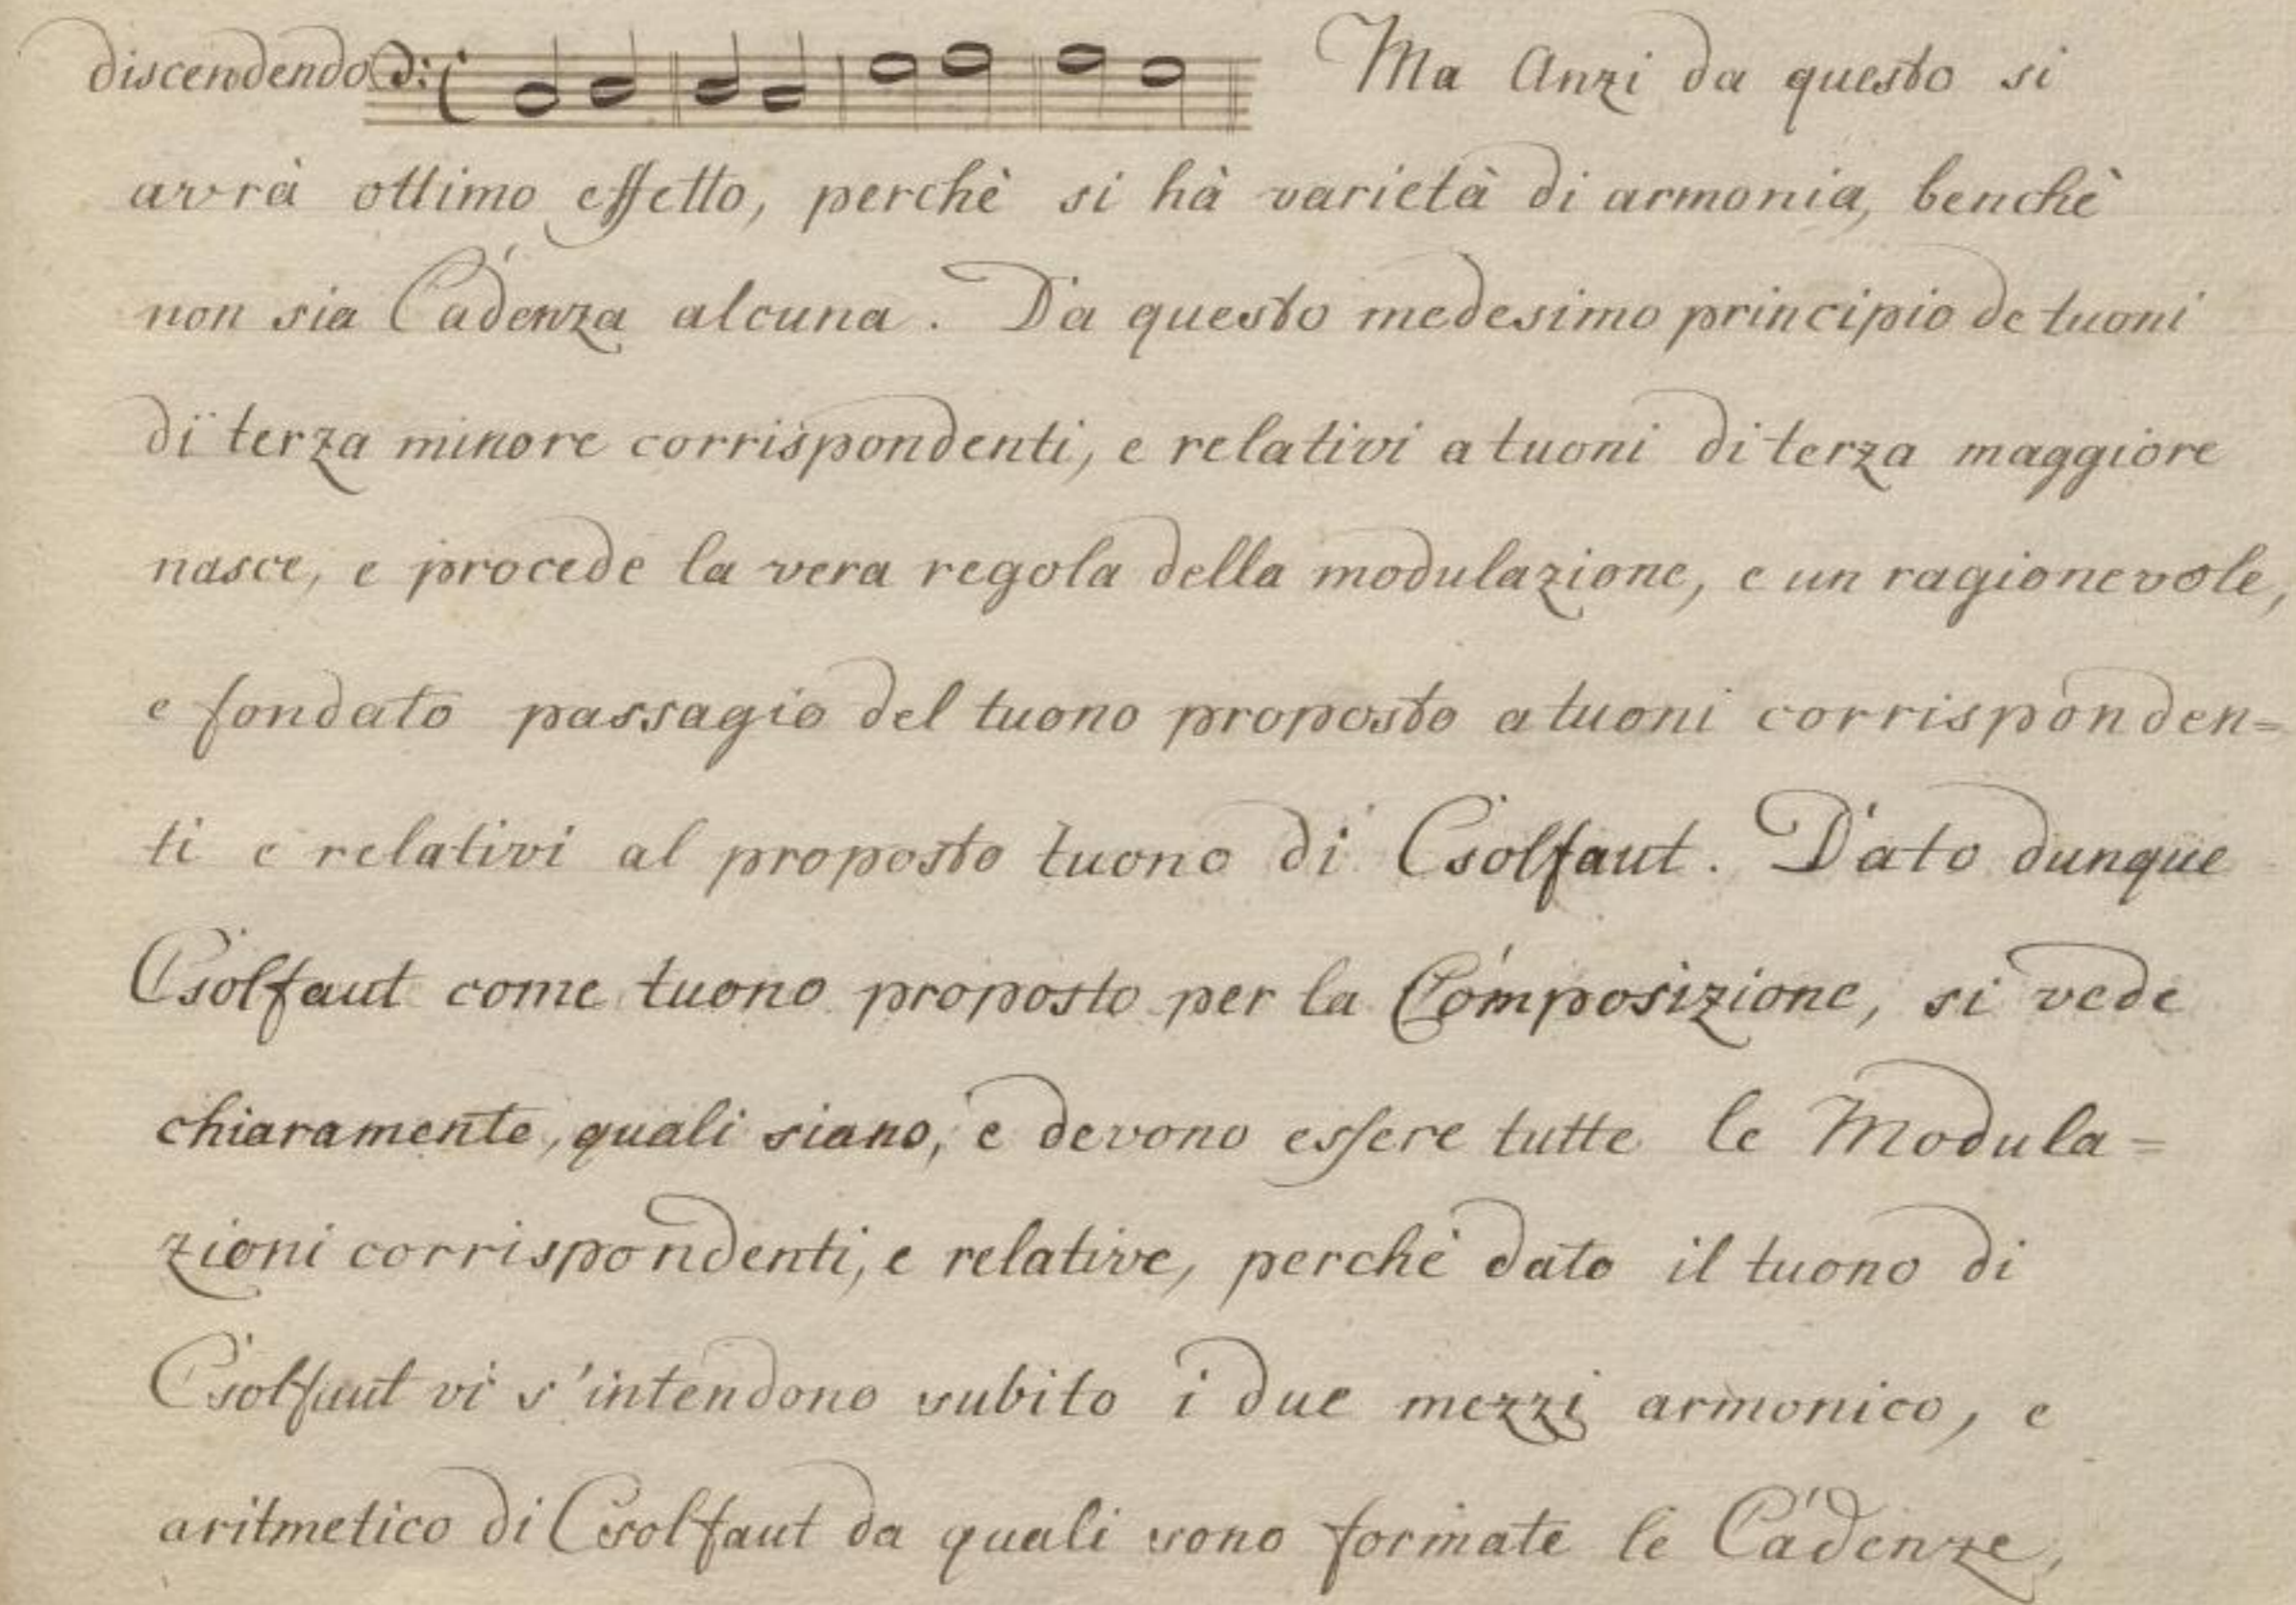 discendendo Ma Anzi da questo si
avrà ottimo effetto, perchè si hà varietà di armonia, benchè
non sia Cadenza alcuna. Da questo medesimo principio de tuoni
di terza minore corrispondenti, e relativi a tuoni di terza maggiore
nasce, e procede la vera regola della modulazione, e un ragionevole,
e fondato passagio del tuono proposto a tuoni corrisponden=
ti e relativi al proposto tuono di Csolfaut. Dato dunque
Csolfaut come tuono proposto per la Composizione, si vede
chiaramente, quali siano, e devono essere tutte le Modula=
zioni corrispondenti, e relative, perchè dato il tuono di
Csolfaut vi s'intendono subito i due mezzi armonico, e
aritmetico di Csolfaut da quali sono formate le Cadenze,